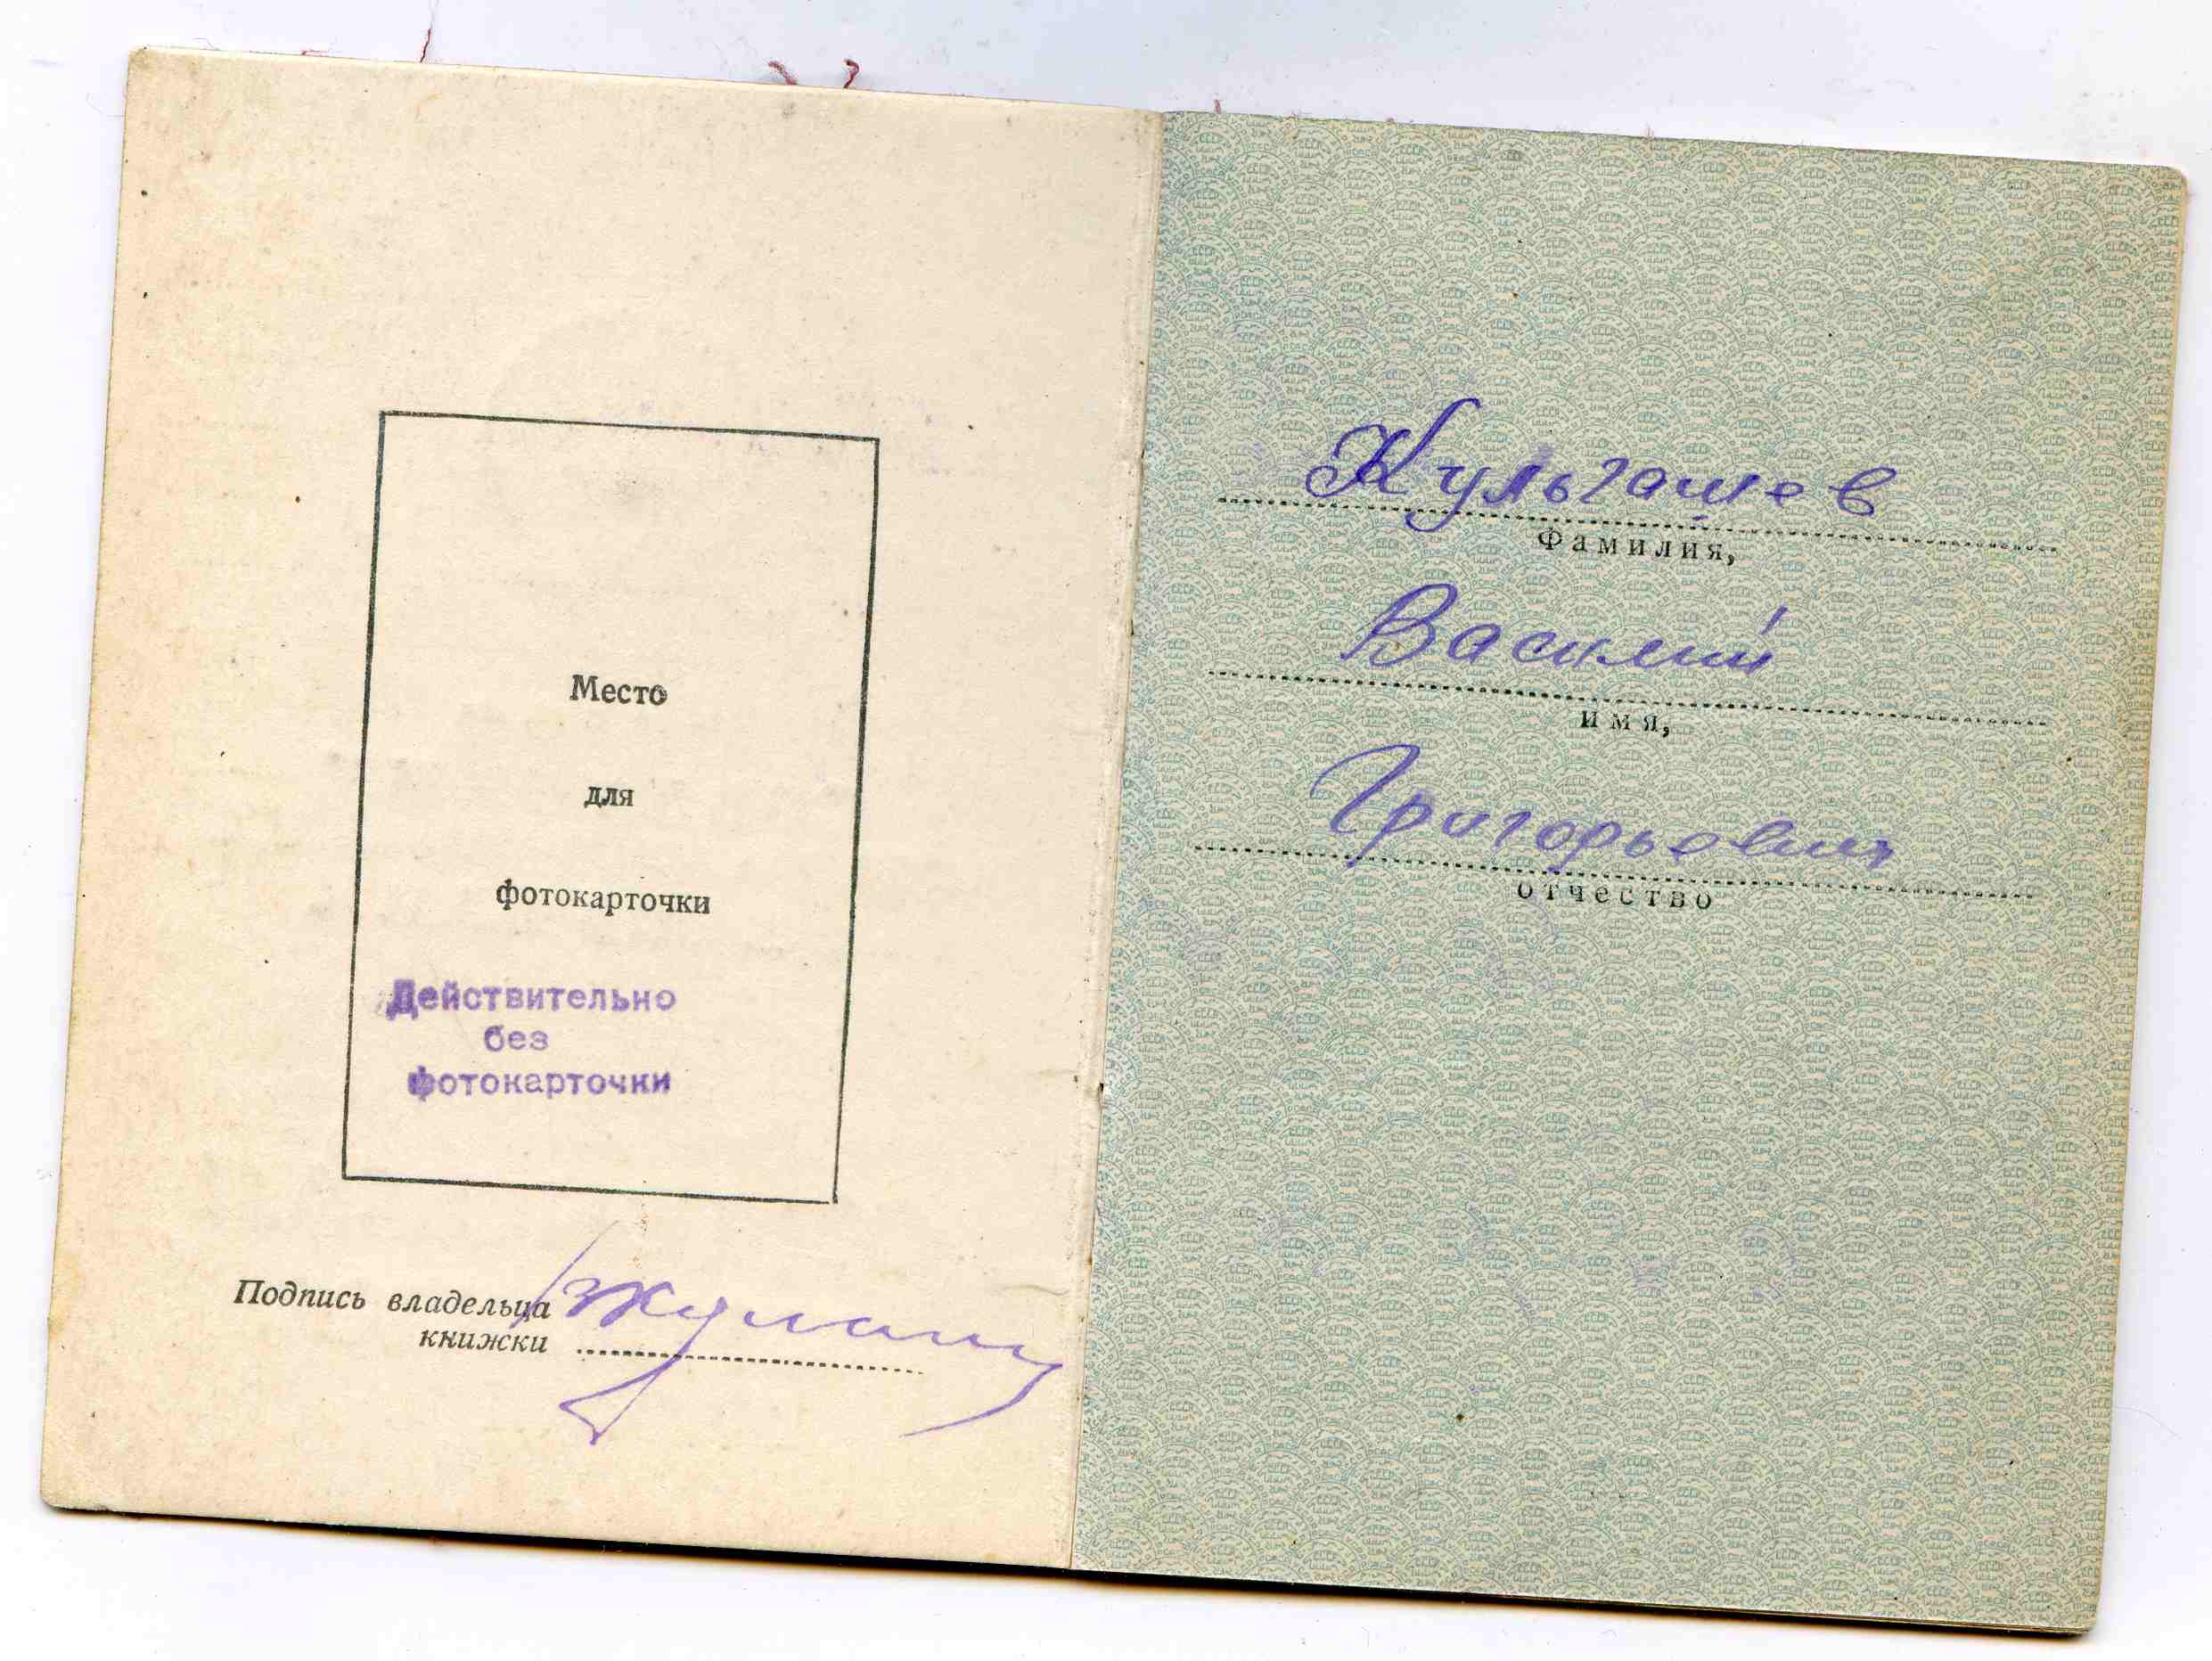 Место
для
фотокарточки
Действительно
без
фотокарточки
Подпись владельца
книжки
Кульгашев
Фамилия,
Василий
имя,
Григорьевич
отчество